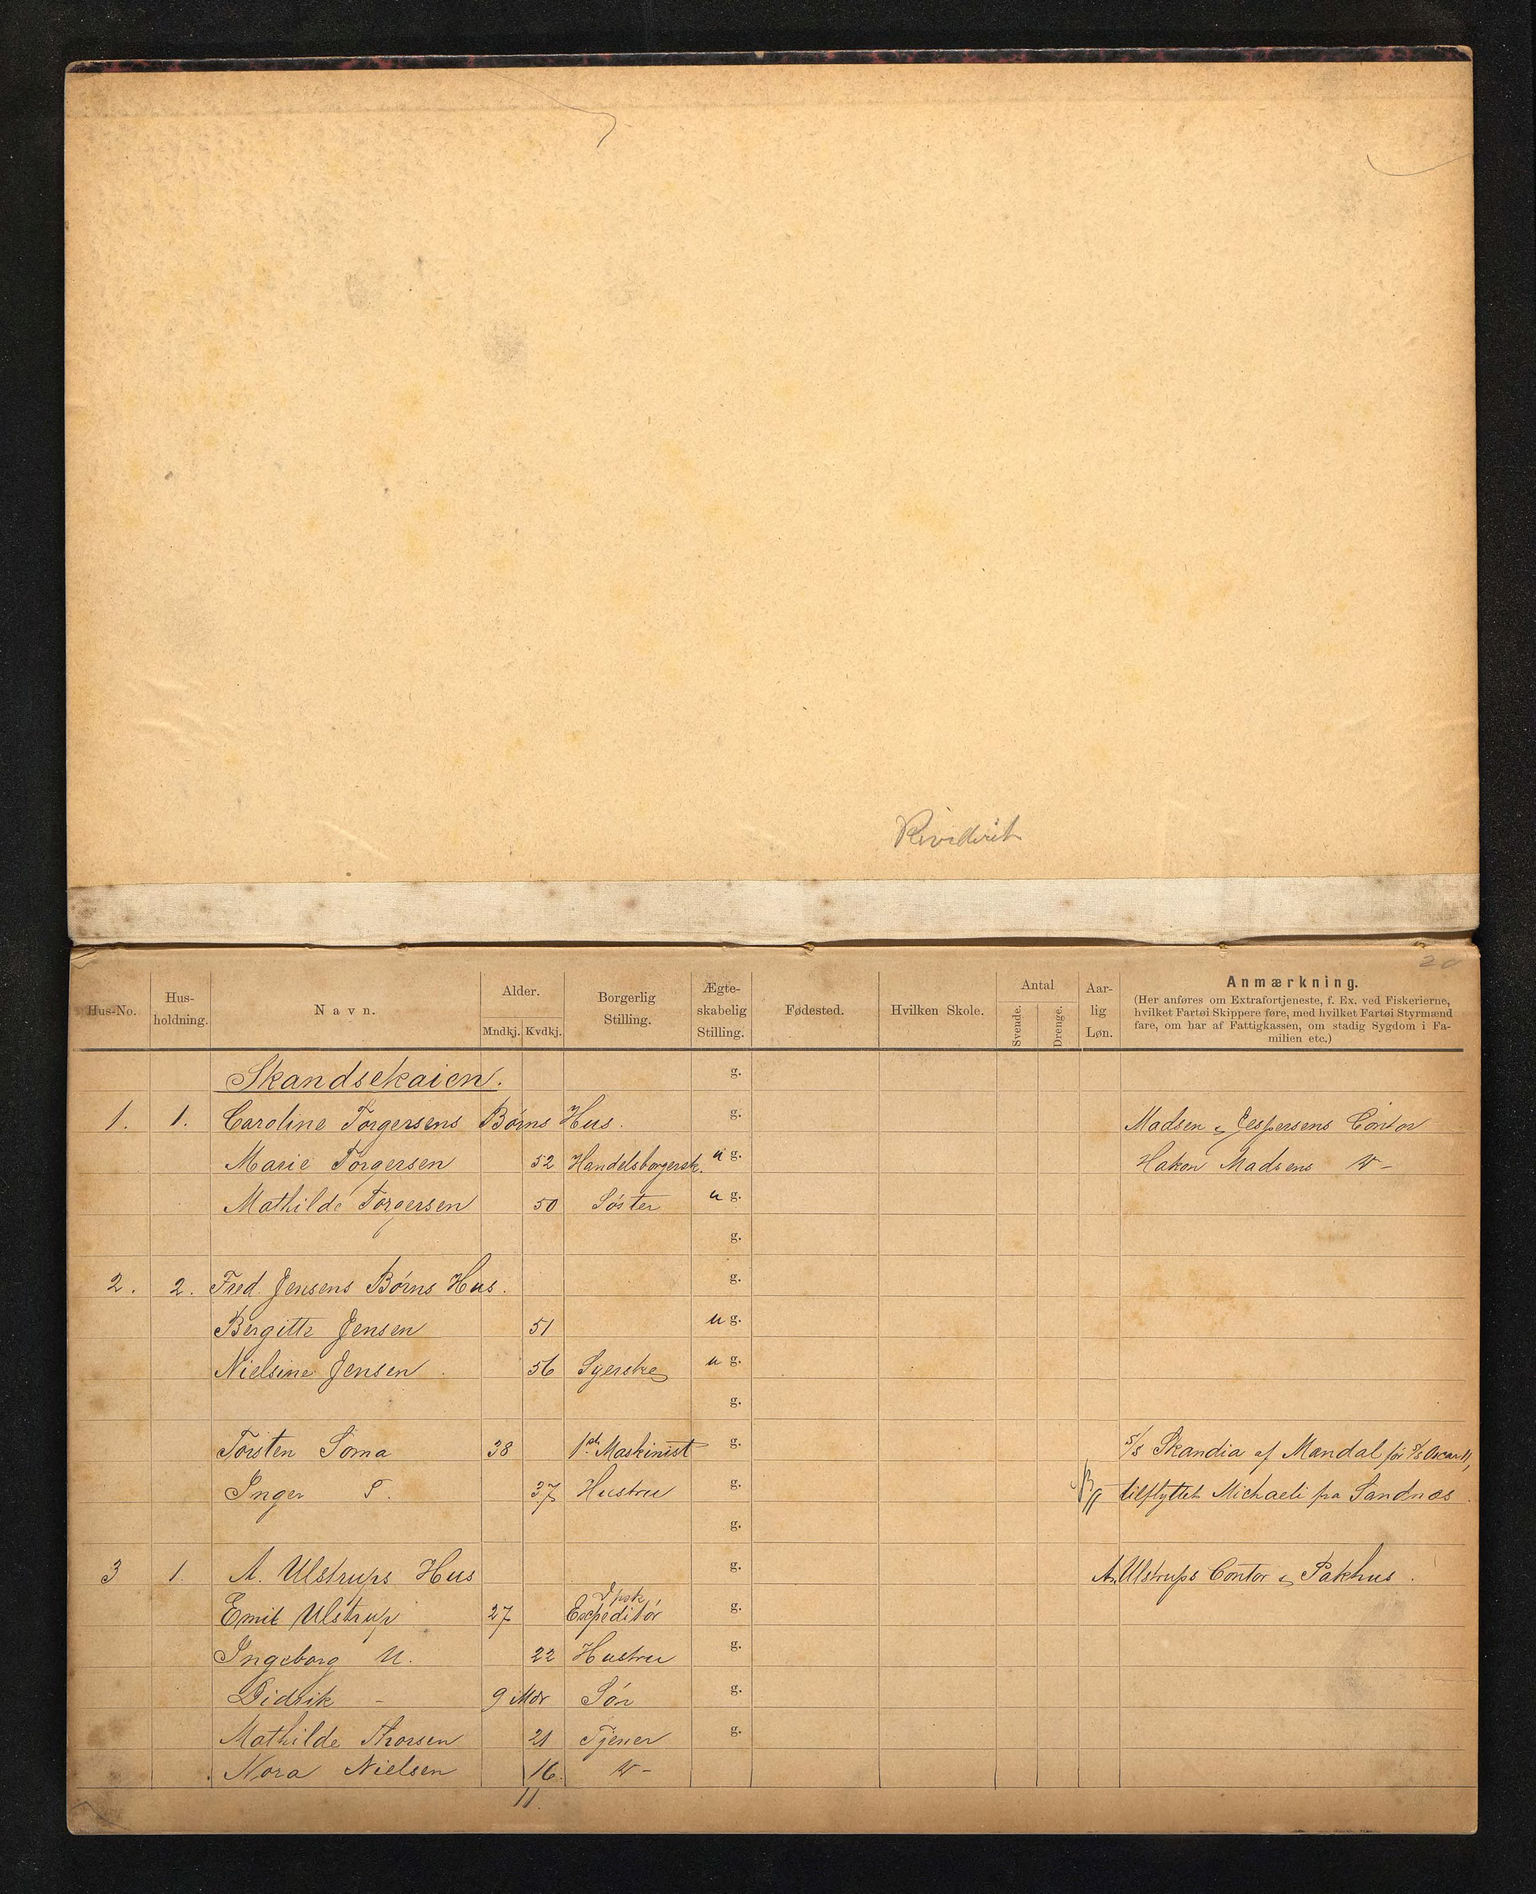 Revideret
20
Hus-No. Hus-holdning. Navn. Alder. Mndkj. Kvdkj. Borgerlig Stilling. Ægte-skabelig Stilling. Fødested. Hvilken Skole. Antal Svende. Drenge. Aar-lig Løn. Anmærkning.
(Her anføres om Extrafortjeneste, f. Ex. ved Fiskerierne,
hvilket Fartøi Skippere føre, med hvilket Fartøi Styrmænd
fare, om har af Fattigkassen, om stadig Sygdom i Fa-
milien etc.)
Skandsekaien. g.
1. 1. Caroline Torgersens Børns Hus. g. Madsen & Jespersens Contor
Marie Torgersen 52 Handelsborgersk. u g. Hakon Madsens W –
Mathilde Torgersen 50 Søster u g.
g.
2. 2. Fred. Jensens Børns Hus. g.
Bergitte Jensen 51 u g.
Nielsine Jensen 56 Syerske u g.
g.
Torsten Soma 38 1ste Maskinist g. S/S Skandia af Mandal før S/S Oscar II,
Inger S. 37 Hustru g. tilflyttet Michaeli fra Sandnæs.
g.
3 1. A. Ulstrups Hus g. A. Ulstrups Contor & Pakhus.
Emil Ulstrup 27 Expeditør g.
Ingeborg U. 22 Hustru g.
Didrik – 9 Mdr Søn g.
Mathilde Thorsen 21 Tjener g.
Nora Nielsen 16. W –
11.